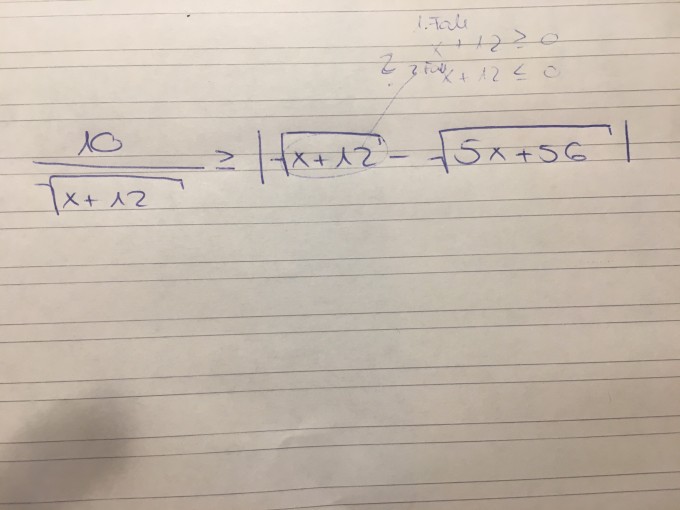 1. Fall
x + 12 ≥ 0
2. Fall x + 12 ≤ 0
10 / √(x + 12) ≥ |√(x + 12) − √(5x + 56)|